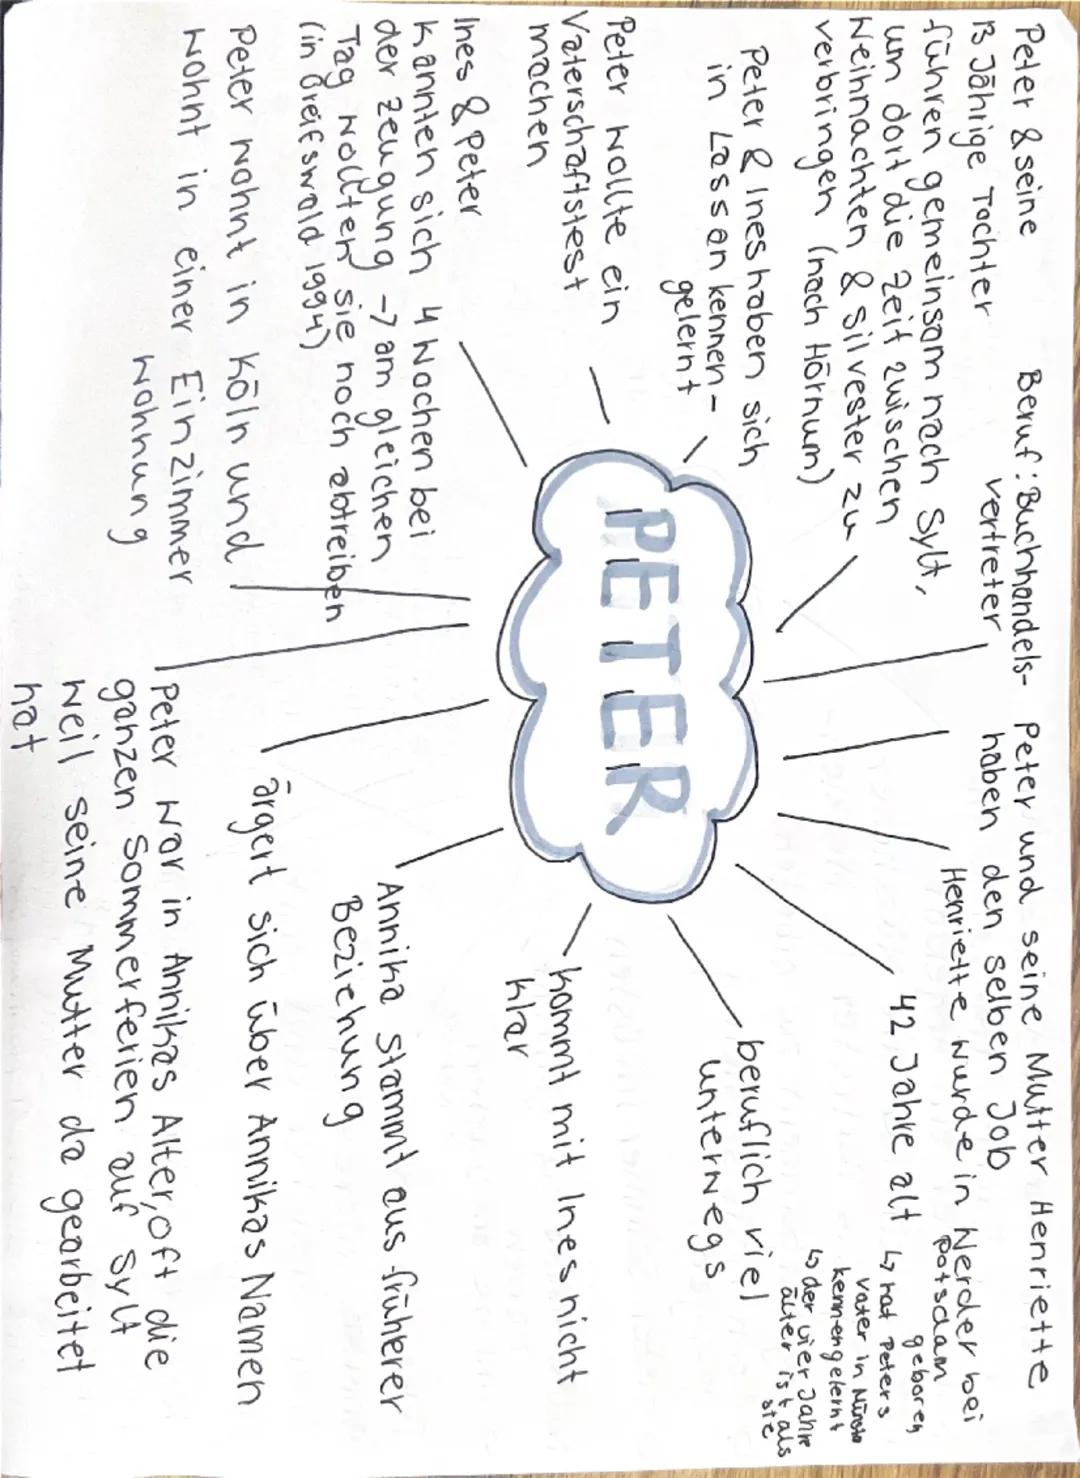 Peter & seine
13 Jährige Tochter
führen gemeinsam nach Sylt,
um dort die Zeit zwischen
Weihnachten & silvester zu
verbringen (nach Hörnum)
Beruf: Buchhandels-
vertreter
Peter und seine Mutter Henriette
haben den selben Job
Henriette wurde in Werder bei
Potsdam
geboren
↳ hat Peters
Vater in
kennengelernt
↳ der vier Jahre
älter ist als
sie
42 Jahre alt
beruflich viel
unterwegs
kommt mit Ines nicht
klar
Annika stammt aus früherer
Beziehung
ärgert sich über Annikas Namen
Peter war in Annikas Alter, oft die
ganzen Sommerferien auf Sylt
weil seine Mutter da gearbeitet
hat
Peter & Ines haben sich
in Lassan kennen-
gelernt
Peter wollte ein
Vaterschaftstest
machen
Ines & Peter
kannten sich 4 Wochen bei
der Zeugung -> am gleichen
Tag wollten sie noch abtreiben
(in Greifswald 1994)
Peter wohnt in Köln und
wohnt in einer Einzimmer
wohnung
PETER